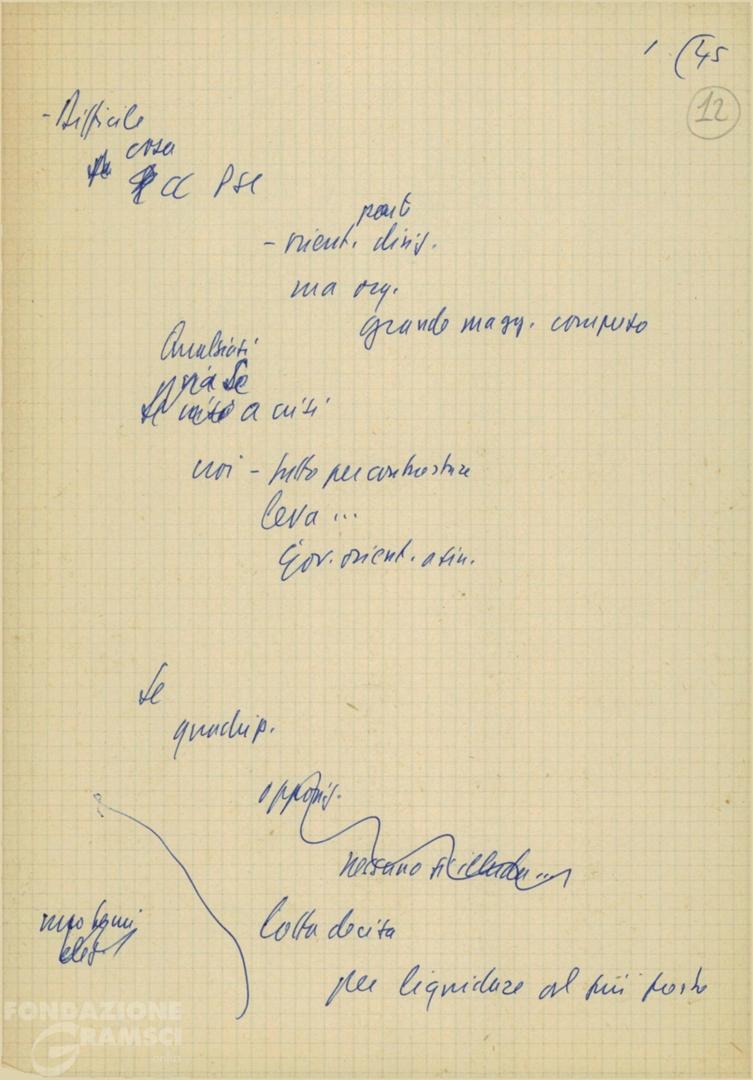 (45
12
- Difficile
cosa
CC PSI
- orient. dirig.
ma org.
grande magg. compreso
Qualsiasi
a crisi
noi - tutto per contrastare
leva ...
Gov. orient. a sin.
Se
quadrip.
opposiz.
nessuno si illuda ...
elez.
lotta decisa
per liquidare al più presto
FONDAZIONE
GRAMSCI